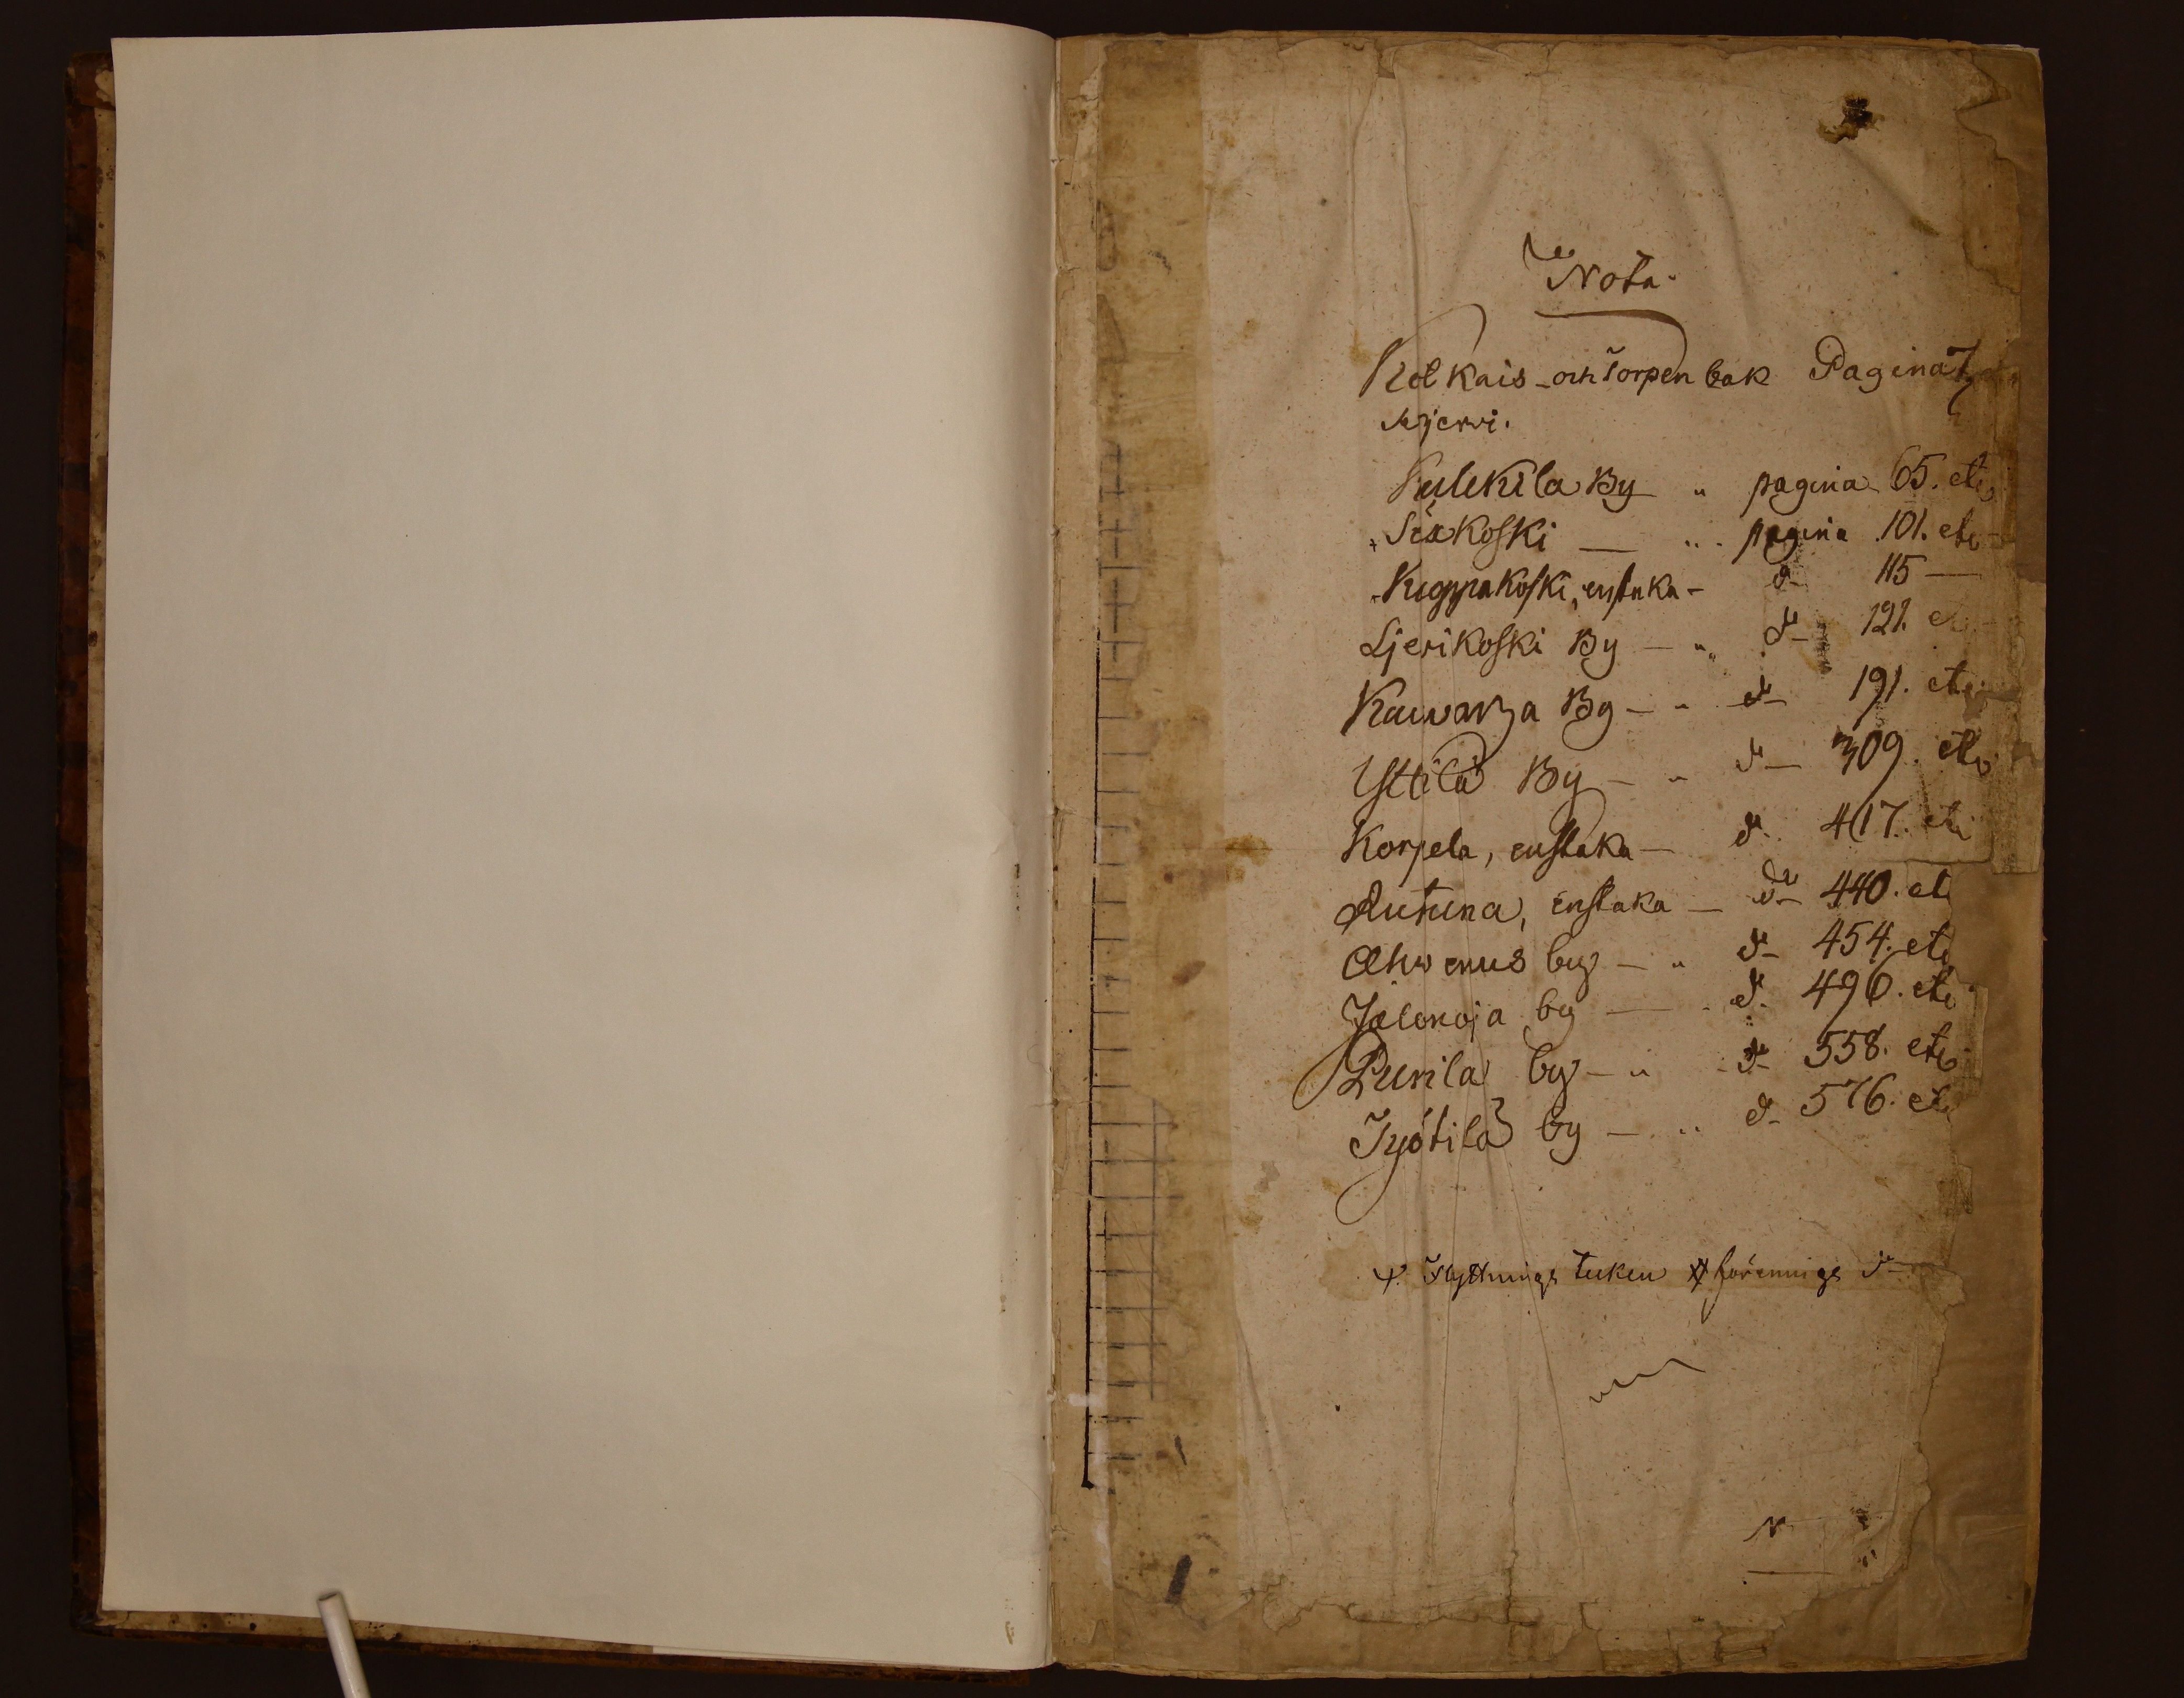 Nota.
Kolkais och Torpen bak Pagina 7
Kjervi.
Kulckila By " pagina 65. etc
Sixkoski — " pagina 101. etc
Kuppakoski, enstaka — d:o 115 —
Ljerikoski By — " d:o 121. etc
Kauvarza By — " d:o 191. etc
Yttilä By — " d:o 309. etc
Korpela, enstaka — d:o 417. etc
Autuna, enstaka — d:o 440. etc
Ahvenus by — " d:o 454. etc
Jalonoja by — " d:o 496. etc
Purila by — " d:o 558. etc
Työtilä by — " d:o 576. etc
+ Flyttnings tecken # förennigs d:o
N